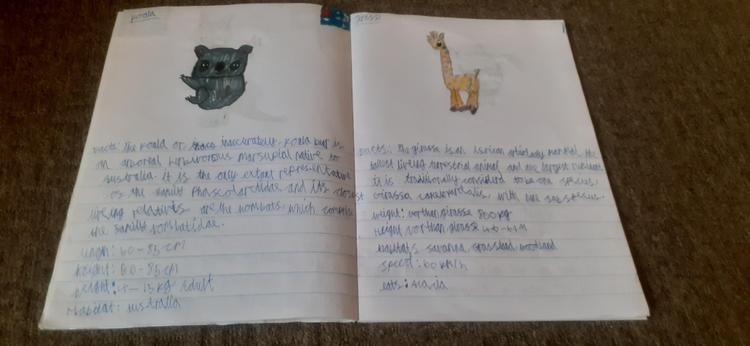 koala
facts: the koala or inaccurately koala bear is
an arboreal herbivorous marsupial native to
australia. it is the only extant representative
of the family Phascolarctidae and its closest
living relatives are the wombats which comprise
the family vombatidae.
length: 60 - 85 cm
height: 60 - 85 cm
weight: - 15 kg adult
Habitat: australia
facts: the girassa is an african artiodactyl mammal, the
tallest living terrestrial animal and the largest ruminant
it is traditionally considered to be one species.
Girassa camelopardalis with nine subspecies.
weight: northan girassa 800kg
Height northan girassa
habitats savanna grassland woodland
speed: 60 km/h
eats: acacia